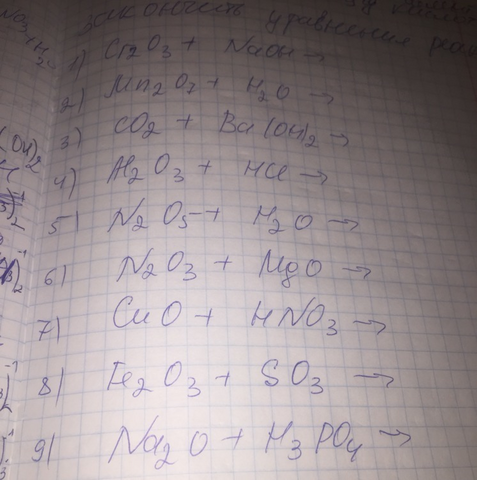 закончить уравнения
1) Cr₂O₃ + NaOH →
2) Mn₂O₇ + H₂O →
3) CO₂ + Ba(OH)₂ →
4) Al₂O₃ + HCl →
5) N₂O₅ + H₂O →
6) N₂O₃ + MgO →
7) CuO + HNO₃ →
8) Fe₂O₃ + SO₃ →
9) Na₂O + H₃PO₄ →